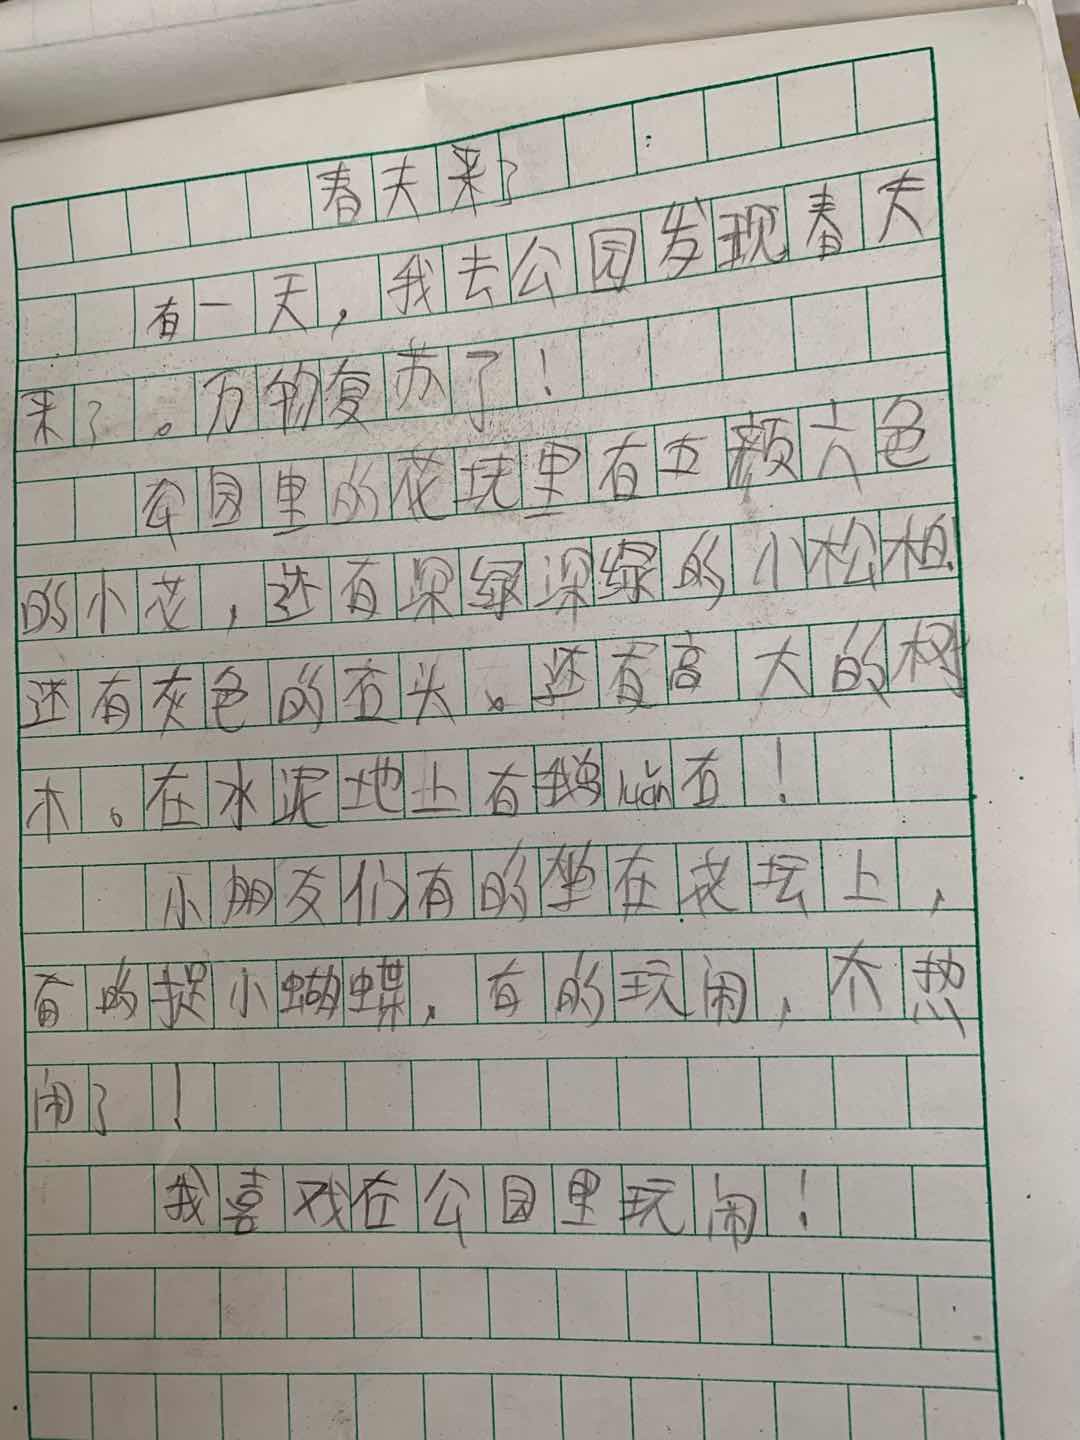 春夫来了
有一天，我去公园发现春夫
来了。万物复苏了！
公园里的花坛里有五颜六色
的小花，还有深绿深绿的小松柏
还有灰色的石头。还有高大的树
木。在水泥地上有鹅luǎn石！
小朋友们有的坐在花坛上，
有的捉小蝴蝶，有的玩闹，太热
闹了！
我喜欢在公园里玩闹！